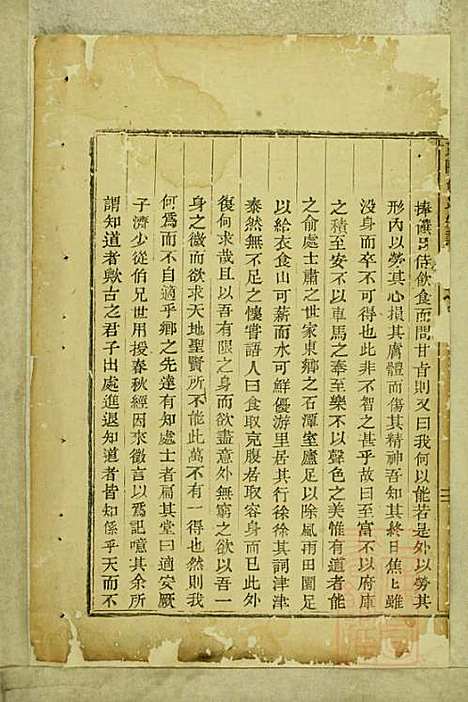 捧饌只侍飲食而問甘旨則又曰我何以能若是外以勞其
形內以勞其心損其膚體而傷其精神吾知其終日焦焦雖
没身而卒不可得也非不智之甚乎故曰至富不以府庫
之積至安不以車馬之奉至樂不以聲色之美惟有道者能
之俞處士肅之世家東鄉之石潭室廬足以除風雨田園足
以給衣食山可薪而水可鮮優游里居其行徐徐其詞津津
泰然無不足之懷嘗語人曰食取充腹居取容身而已此外
復何求哉且以吾有限之身而欲盡意外無窮之欲以吾一
身之微而欲求天地聖賢所不能此萬不有一得也然則我
何爲而不自適乎鄉之先達有知處士者扁其堂曰適安厥
子濟少從伯兄世用授春秋經因來徵言以爲記噫其余所
謂知道者歟古之君子出處進退知道者皆知係乎天而不